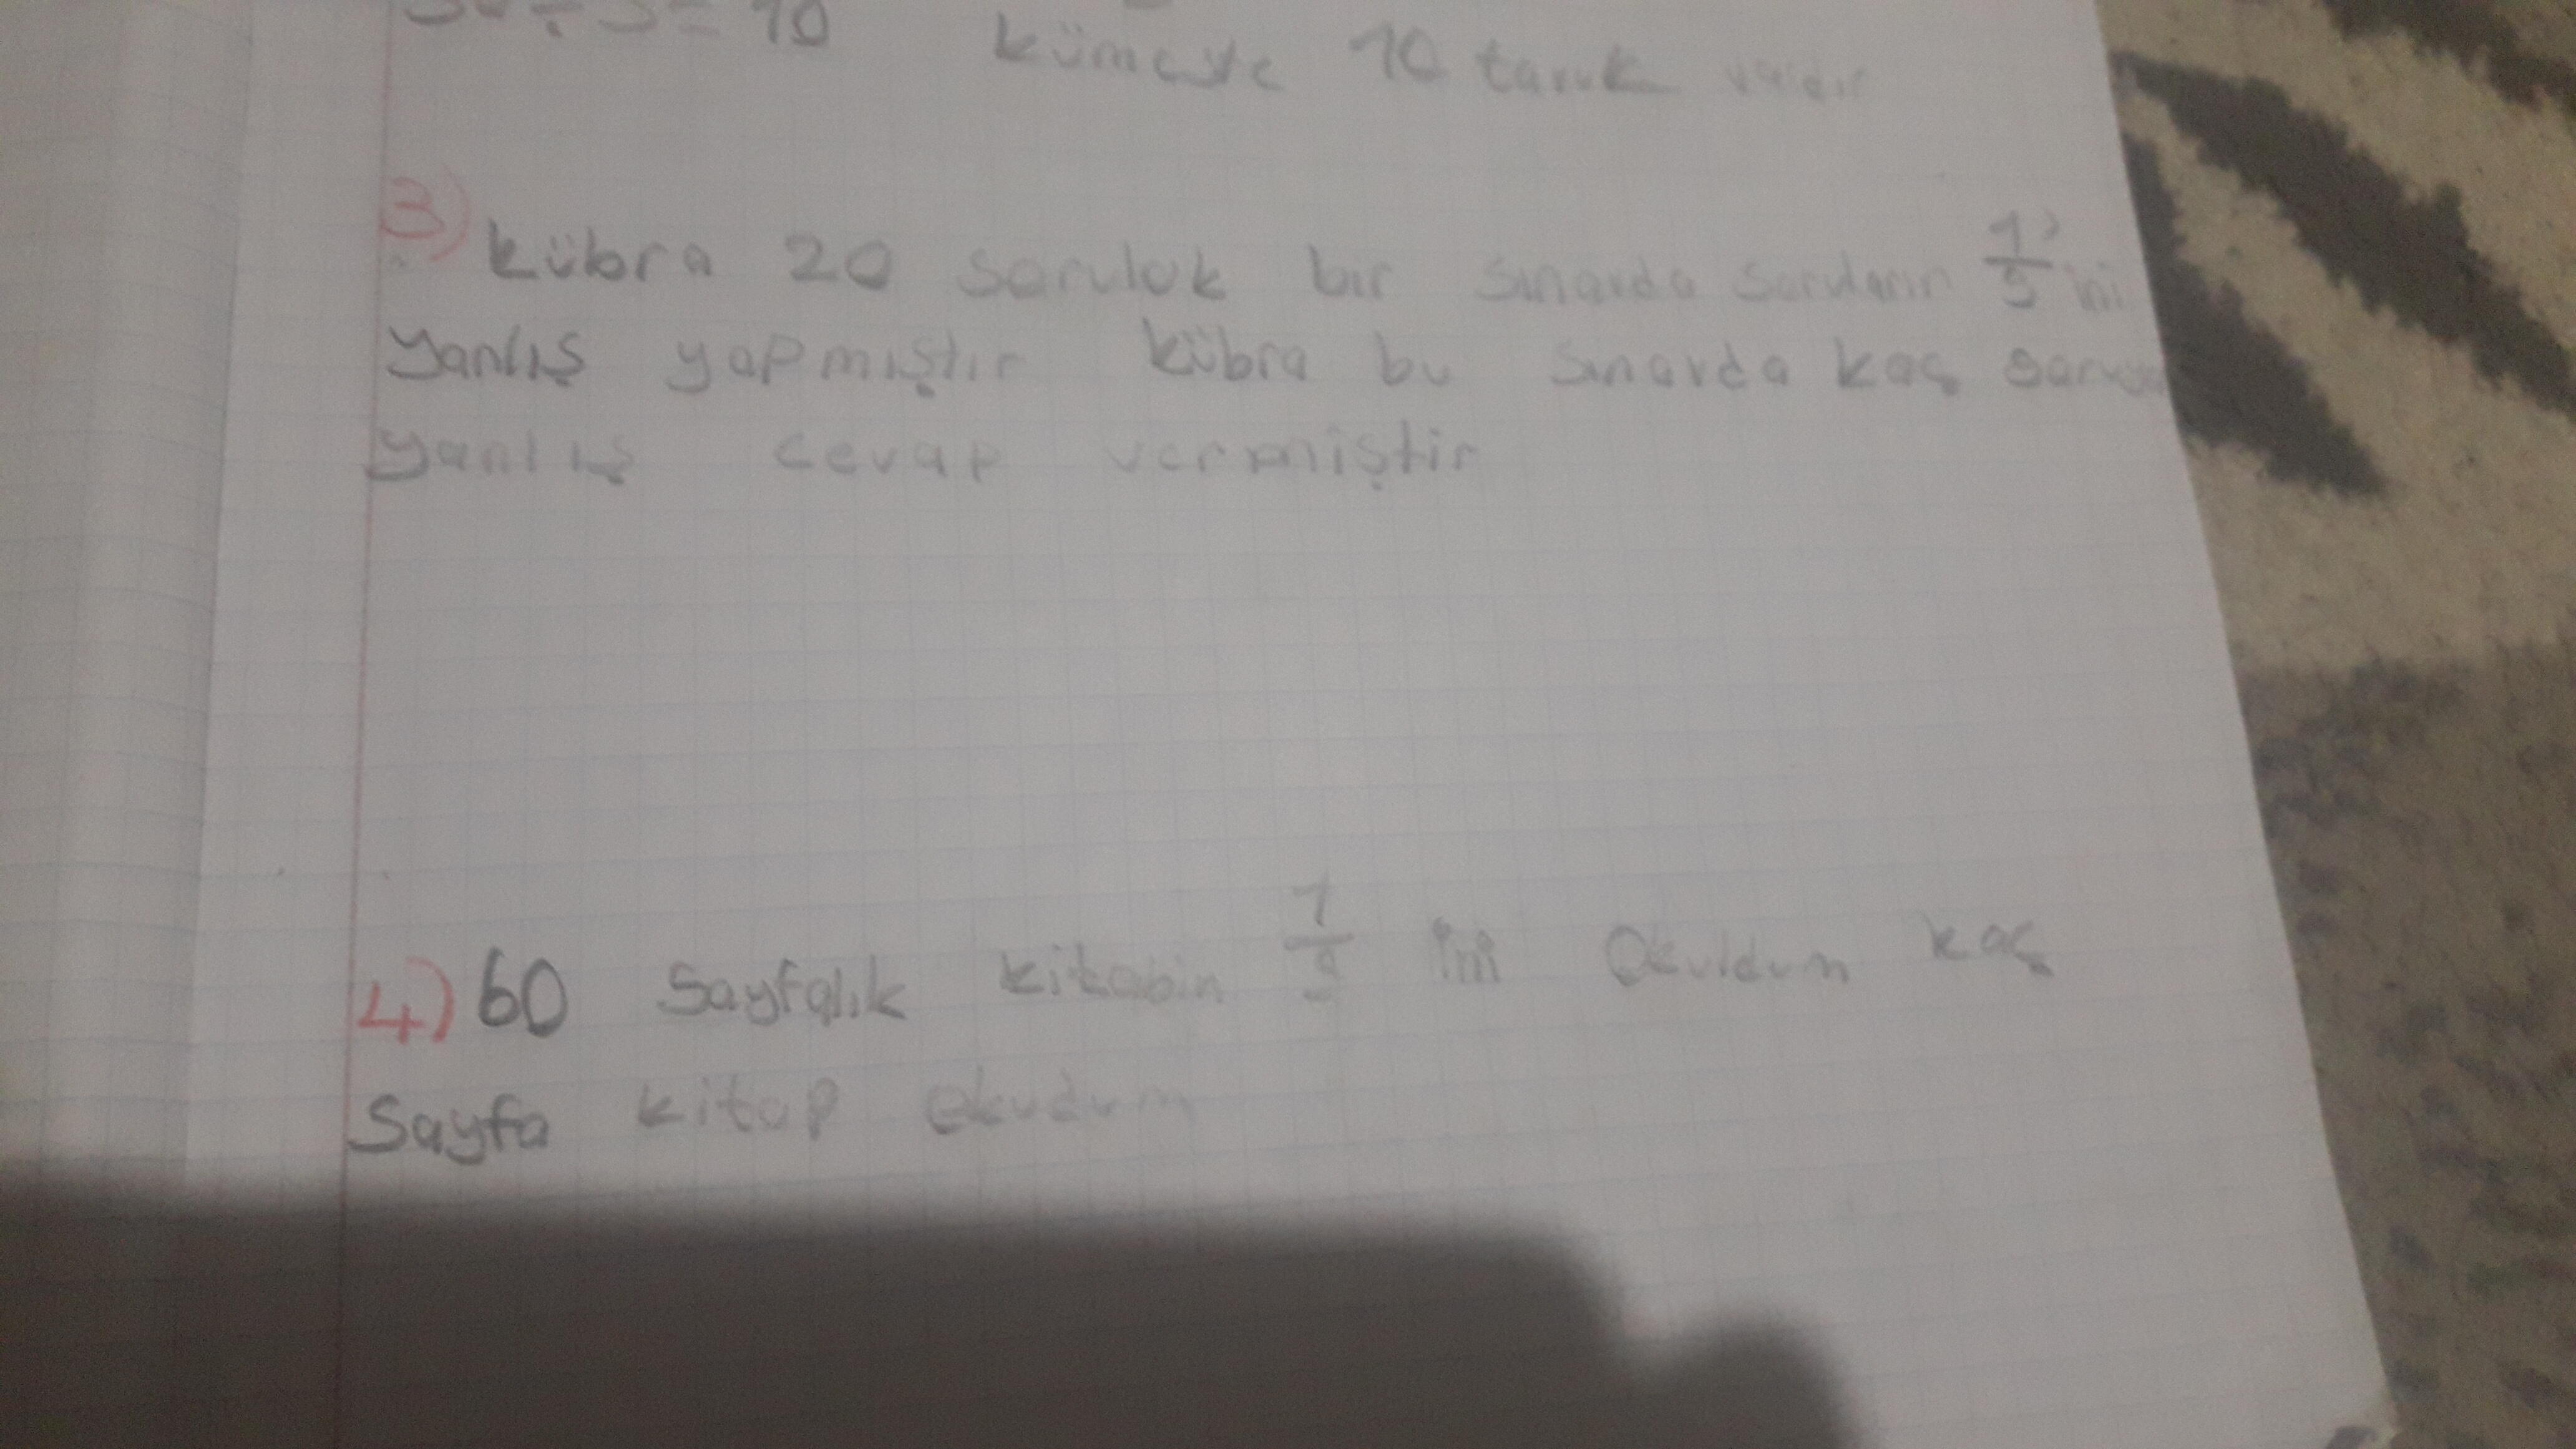 ÷ 3 = 10 kümeste 10 tavuk vardır
3) Kübra 20 soruluk bir sınavda soruların 1/5 'ini
yanlış yapmıştır Kübra bu sınavda kaç soruya
yanlış cevap vermiştir
4) 60 Sayfalık kitabın ini Okuldum kaç
Sayfa kitap okudum